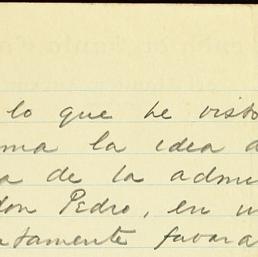 lo que he visto
ma la idea d
a de la admi
don Pedro, en u
tamente favora